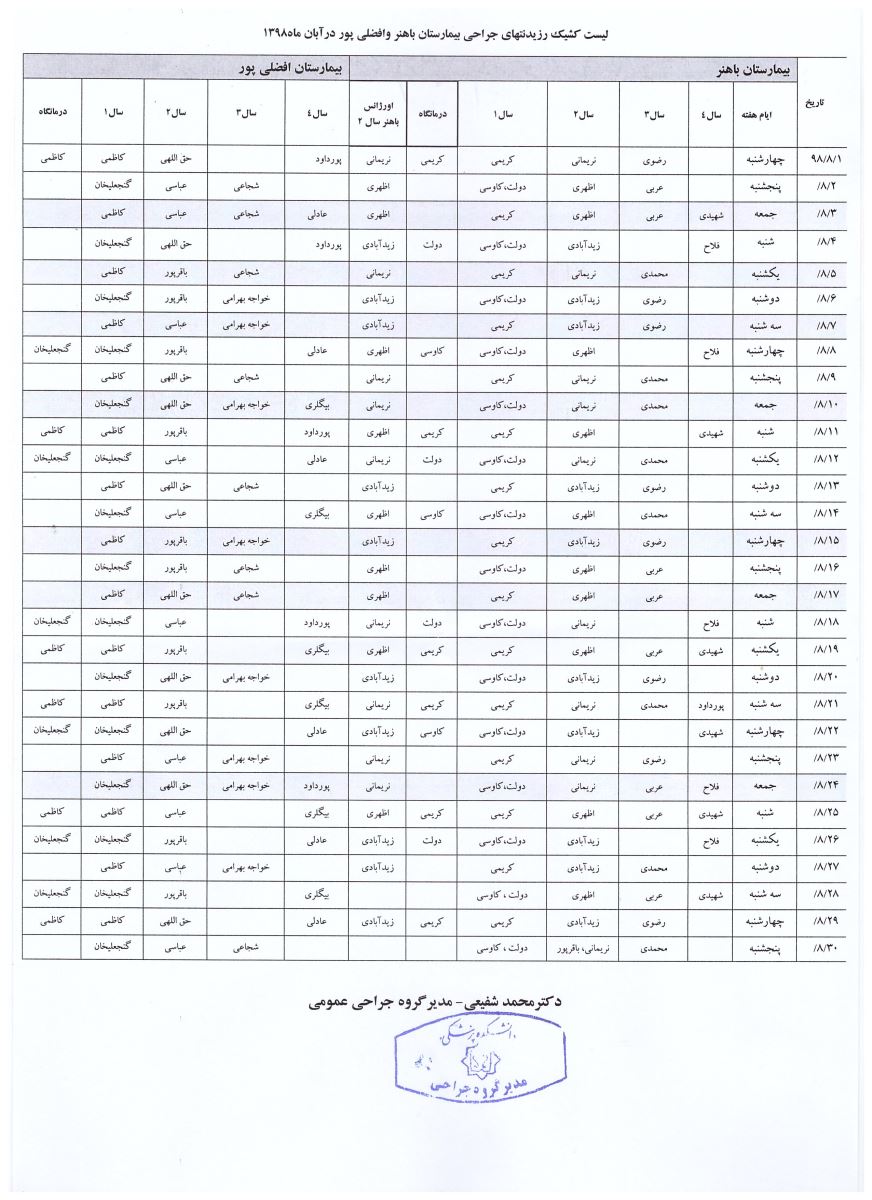 لیست کشیک رزیدنتهای جراحی بیمارستان باهنر وافضلی پور درآبان ماه۱۳۹۸
تاریخ بیمارستان باهنر بیمارستان افضلی پور
ایام هفته سال٤ سال۳ سال۲ سال۱ درمانگاه اورژانس باهنر سال ۲ سال٤ سال۳ سال۲ سال۱ درمانگاه
۹۸/۸/۱ چهارشنبه رضوی نریمانی کریمی کریمی نریمانی پورداود حق اللهی کاظمی کاظمی
/۸/۲ پنجشنبه عربی اظهری دولت،کاوسی اظهری شجاعی عباسی گنجعلیخان
/۸/۳ جمعه شهیدی عربی اظهری کریمی اظهری عادلی شجاعی عباسی کاظمی
/۸/۴ شنبه فلاح زیدآبادی دولت،کاوسی دولت زیدآبادی پورداود حق اللهی گنجعلیخان
/۸/۵ یکشنبه محمدی نریمانی کریمی نریمانی شجاعی باقرپور کاظمی
/۸/۶ دوشنبه رضوی زیدآبادی دولت،کاوسی زیدآبادی خواجه بهرامی باقرپور گنجعلیخان
/۸/۷ سه شنبه رضوی زیدآبادی کریمی زیدآبادی خواجه بهرامی عباسی کاظمی
/۸/۸ چهارشنبه فلاح اظهری دولت،کاوسی کاوسی اظهری عادلی باقرپور گنجعلیخان گنجعلیخان
/۸/۹ پنجشنبه محمدی نریمانی کریمی نریمانی شجاعی حق اللهی کاظمی
/۸/۱۰ جمعه محمدی نریمانی دولت،کاوسی نریمانی بیگلری خواجه بهرامی حق اللهی گنجعلیخان
/۸/۱۱ شنبه شهیدی اظهری کریمی کریمی اظهری پورداود باقرپور کاظمی کاظمی
/۸/۱۲ یکشنبه محمدی نریمانی دولت،کاوسی دولت نریمانی عادلی عباسی گنجعلیخان گنجعلیخان
/۸/۱۳ دوشنبه رضوی زیدآبادی کریمی زیدآبادی شجاعی حق اللهی کاظمی
/۸/۱۴ سه شنبه محمدی اظهری دولت،کاوسی کاوسی اظهری بیگلری عباسی گنجعلیخان
/۸/۱۵ چهارشنبه رضوی زیدآبادی کریمی زیدآبادی خواجه بهرامی باقرپور کاظمی
/۸/۱۶ پنجشنبه عربی اظهری دولت،کاوسی اظهری شجاعی باقرپور گنجعلیخان
/۸/۱۷ جمعه عربی اظهری کریمی اظهری شجاعی حق اللهی کاظمی
/۸/۱۸ شنبه فلاح نریمانی دولت،کاوسی دولت نریمانی پورداود عباسی گنجعلیخان گنجعلیخان
/۸/۱۹ یکشنبه شهیدی عربی اظهری کریمی کریمی اظهری بیگلری باقرپور کاظمی کاظمی
/۸/۲۰ دوشنبه رضوی زیدآبادی دولت،کاوسی زیدآبادی خواجه بهرامی حق اللهی گنجعلیخان
/۸/۲۱ سه شنبه پورداود محمدی نریمانی کریمی کریمی نریمانی بیگلری باقرپور کاظمی کاظمی
/۸/۲۲ چهارشنبه شهیدی زیدآبادی دولت،کاوسی کاوسی زیدآبادی عادلی حق اللهی گنجعلیخان گنجعلیخان
/۸/۲۳ پنجشنبه رضوی نریمانی کریمی نریمانی خواجه بهرامی عباسی کاظمی
/۸/۲۴ جمعه فلاح عربی نریمانی دولت،کاوسی نریمانی پورداود خواجه بهرامی حق اللهی گنجعلیخان
/۸/۲۵ شنبه شهیدی عربی اظهری کریمی کریمی اظهری بیگلری عباسی کاظمی کاظمی
/۸/۲۶ یکشنبه فلاح زیدآبادی دولت،کاوسی دولت زیدآبادی عادلی باقرپور گنجعلیخان گنجعلیخان
/۸/۲۷ دوشنبه محمدی زیدآبادی کریمی زیدآبادی خواجه بهرامی عباسی کاظمی
/۸/۲۸ سه شنبه شهیدی عربی اظهری دولت ، کاوسی بیگلری باقرپور گنجعلیخان گنجعلیخان
/۸/۲۹ چهارشنبه رضوی زیدآبادی کریمی کریمی زیدآبادی عادلی حق اللهی کاظمی کاظمی
/۸/۳۰ پنجشنبه محمدی نریمانی، باقرپور دولت ، کاوسی شجاعی عباسی گنجعلیخان
دکترمحمد شفیعی- مدیرگروه جراحی عمومی
دانشکده پزشکی
مدیر گروه جراحی